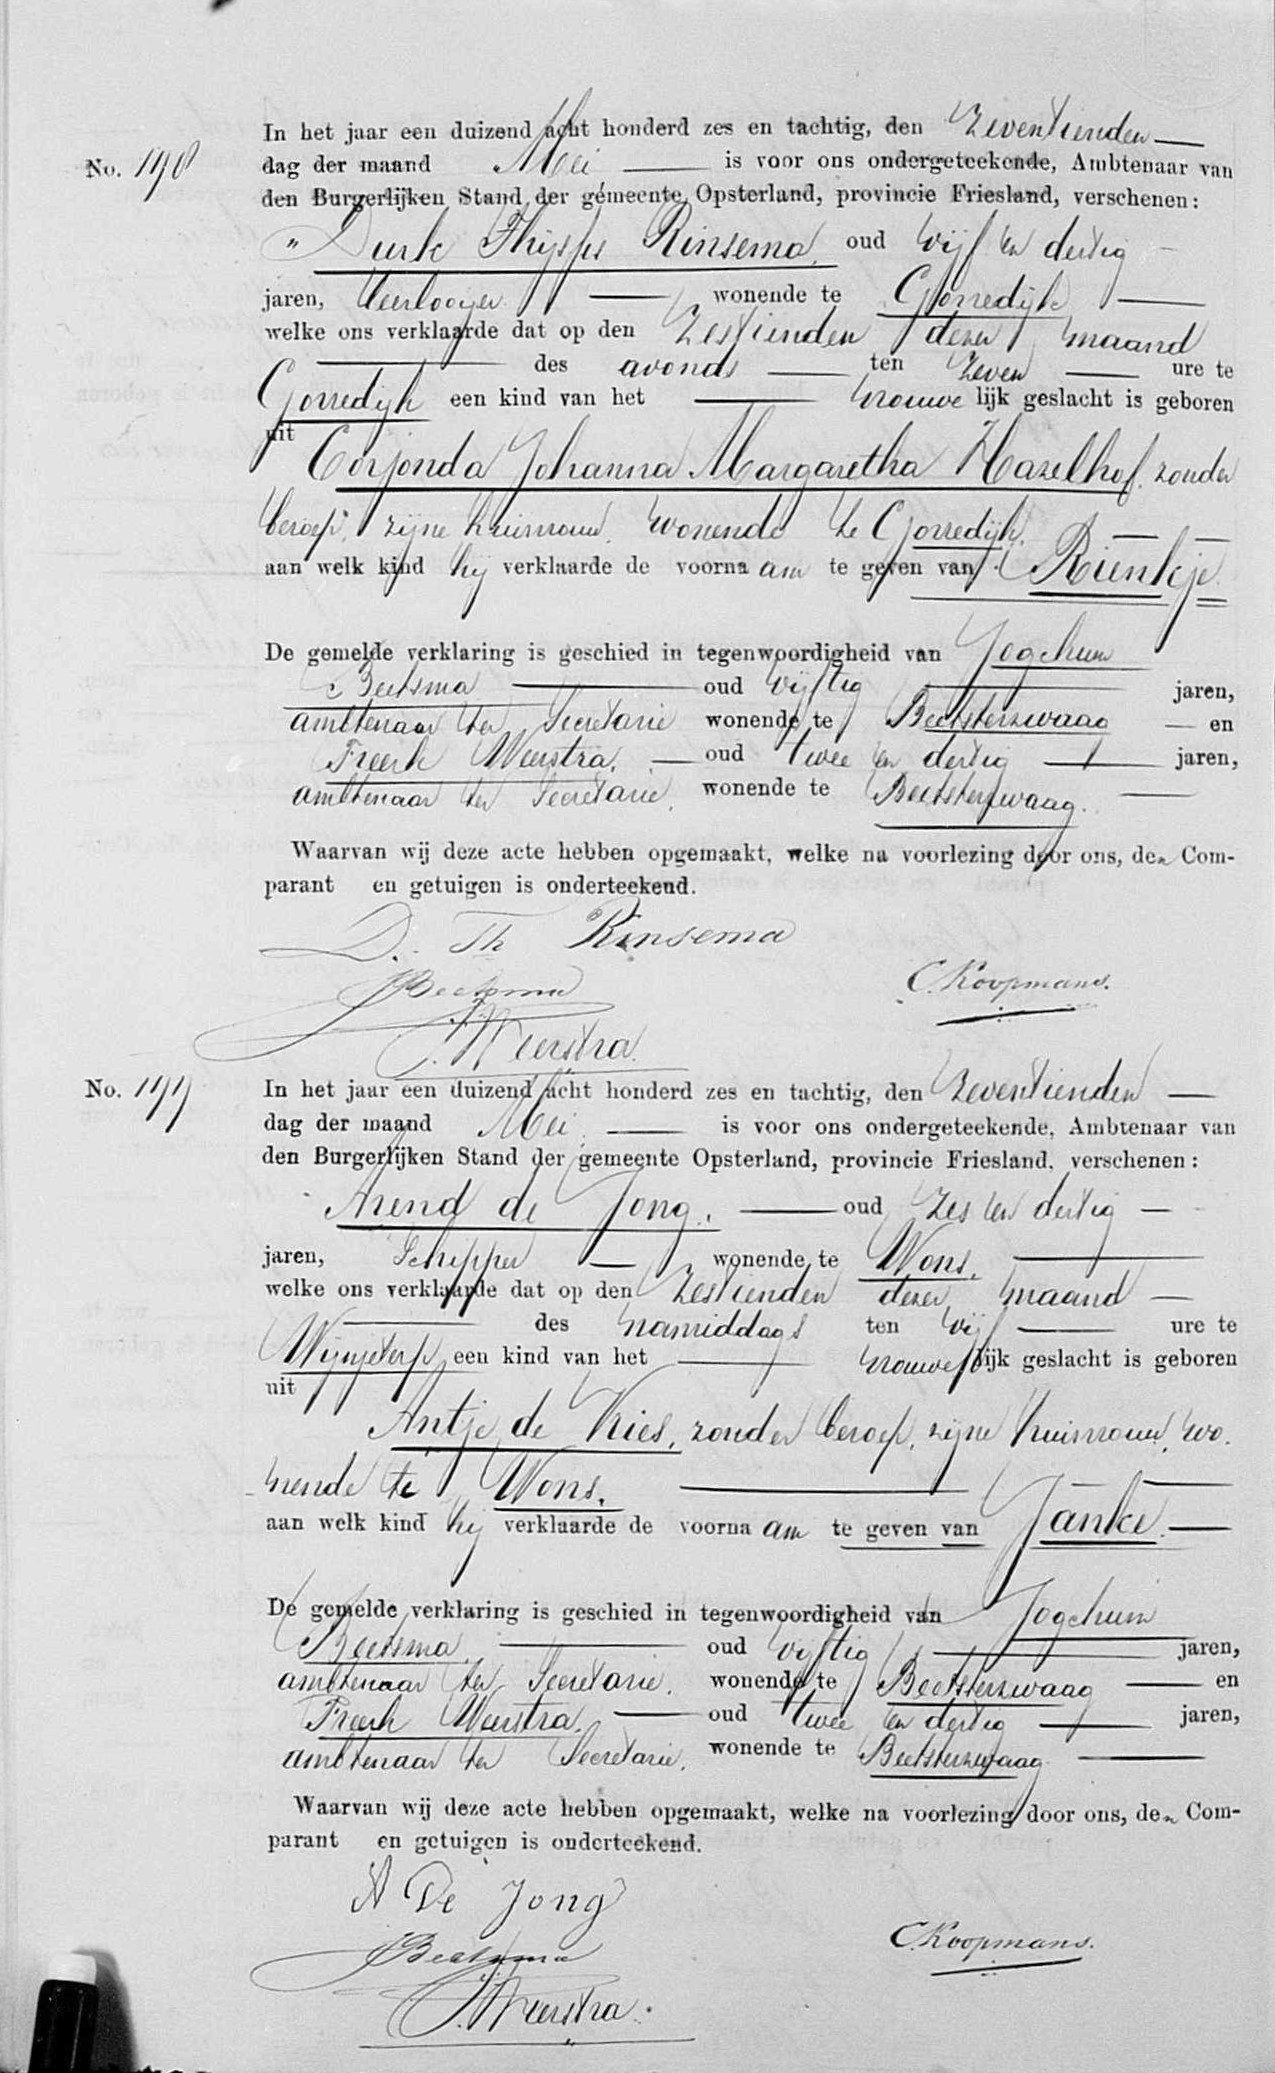 In het jaar een duizend acht honderd zes en tachtig, den Zeventienden
No. 198 dag der maand Mei is voor ons ondergeteekende, Ambtenaar van
den Burgerlijken Stand der gemeente Opsterland, provincie Friesland, verschenen:
Durk Thijsses Rinsema, oud vijf en dertig
jaren, Leerlooyer wonende te Gorredijk
welke ons verklaarde dat op den Zestienden dezer maand
des avonds ten zeven ure te
Gorredijk een kind van het vrouwelijk geslacht is geboren
uit
Corjonda Johanna Margaretha Hazelhof, zonder
beroep, zijne huisvrouw, wonende te Gorredijk,
aan welk kind hij verklaarde de voornaam te geven van Rienkje
De gemelde verklaring is geschied in tegenwoordigheid van Jogchum
Beetsma oud vijftig jaren,
ambtenaar ter Secretarie wonende te Beetsterzwaag en
Freerk Weerstra, oud twee en dertig jaren,
ambtenaar ter Secretarie, wonende te Beetsterzwaag.
Waarvan wij deze acte hebben opgemaakt, welke na voorlezing door ons, den Com-
parant en getuigen is onderteekend.
D. Th Rinsema
JBeetsma C. Koopmans.
F. Weerstra
No. 199 In het jaar een duizend acht honderd zes en tachtig, den Zeventienden
dag der maand Mei is voor ons ondergeteekende, Ambtenaar van
den Burgerlijken Stand der gemeente Opsterland, provincie Friesland, verschenen:
Arend de Jong, oud zes en dertig
jaren, Schipper wonende te Wons,
welke ons verklaarde dat op den Zestienden dezer maand
des namiddags ten vijf ure te
Wijnjeterp een kind van het vrouwelijk geslacht is geboren
uit
Antje de Vries, zonder beroep, zijne huisvrouw, wo-
nende te Wons,
aan welk kind hij verklaarde de voornaam te geven van Janke
De gemelde verklaring is geschied in tegenwoordigheid van Jogchum
Beetsma, oud vijftig jaren,
ambtenaar ter Secretarie, wonende te Beetsterzwaag en
Freerk Weerstra, oud twee en dertig jaren,
ambtenaar ter Secretarie, wonende te Beetsterzwaag
Waarvan wij deze acte hebben opgemaakt, welke na voorlezing door ons, den Com-
parant en getuigen is onderteekend.
A De Jong
JBeetsma C. Koopmans.
F. Weerstra.